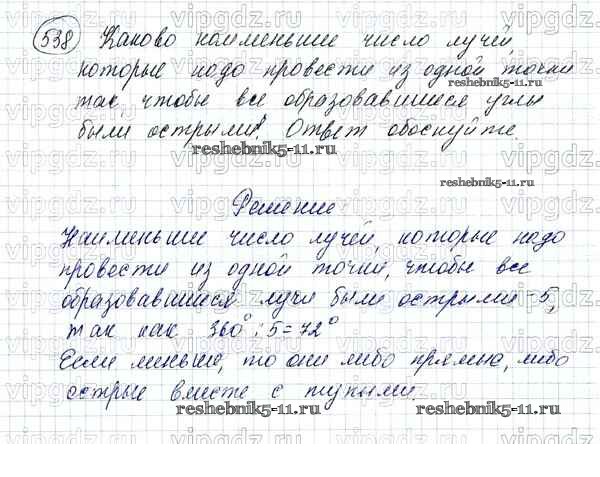 538 Каково наименьшее число лучей,
которые надо провести из одной точки
так, чтобы все образовавшиеся углы
были острыми? Ответ обоснуйте.
Решение
Наименьшее число лучей, которые надо
провести из одной точки, чтобы все
образовавшиеся лучи были острыми -5,
так как 360° : 5 = 72°
Если меньше, то они либо прямые, либо
острые вместе с тупыми.
reshebnik5-11.ru
reshebnik5-11.ru
reshebnik5-11.ru
reshebnik5-11.ru
reshebnik5-11.ru